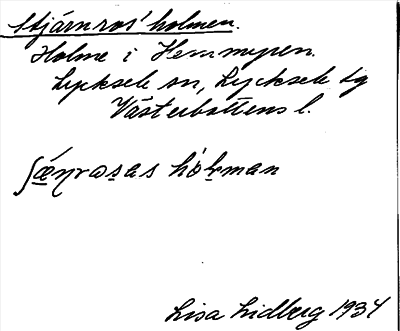 Stjärnros'holmen.
Holme i Hemmyren.
Lycksele sn, Lycksele lg
Västerbottens l.
ʃæɳrωsas hòlman
Lisa Lidberg 1934